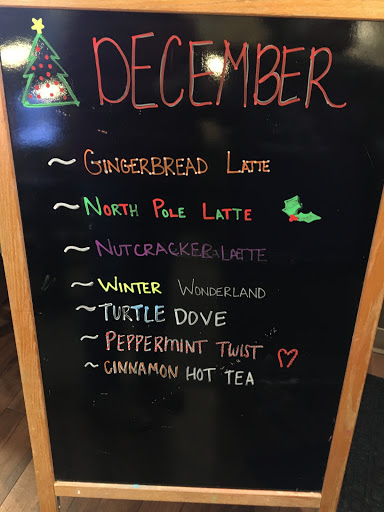 DECEMBER
~ GINGERBREAD LATTE
~ NORTH POLE LATTE
~ NUTCRACKER LATTE
~ WINTER WONDERLAND
~ TURTLE DOVE
~ PEPPERMINT TWIST
~ CINNAMON HOT TEA